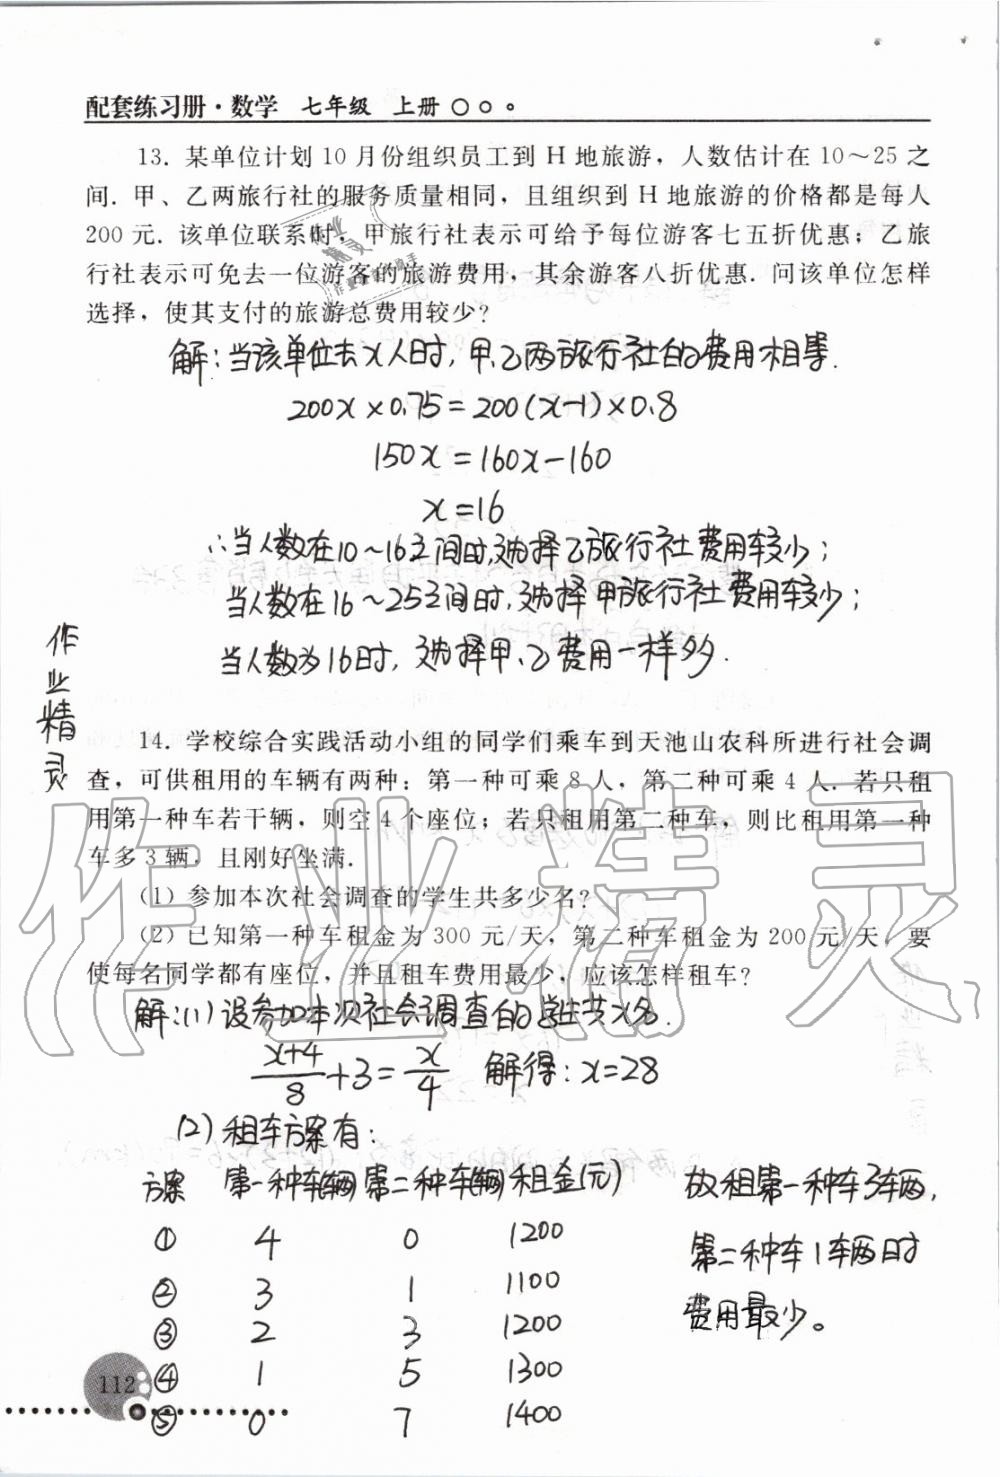 配套练习册·数学 七年级 上册
13. 某单位计划 10 月份组织员工到 H 地旅游，人数估计在 10～25 之
间. 甲、乙两旅行社的服务质量相同，且组织到 H 地旅游的价格都是每人
200 元. 该单位联系时，甲旅行社表示可给予每位游客七五折优惠；乙旅
行社表示可免去一位游客的旅游费用，其余游客八折优惠. 问该单位怎样
选择，使其支付的旅游总费用较少？
解：当该单位去x人时，甲、乙两旅行社的费用相等.
200x×0.75=200(x-1)×0.8
150x=160x-160
x=16
∴当人数在10~16之间时，选择乙旅行社费用较少；
当人数在16~25之间时，选择甲旅行社费用较少；
当人数为16时，选择甲、乙费用一样多.
作业精灵
14. 学校综合实践活动小组的同学们乘车到天池山农科所进行社会调
查，可供租用的车辆有两种：第一种可乘 8 人，第二种可乘 4 人. 若只租
用第一种车若干辆，则空 4 个座位；若只租用第二种车，则比租用第一种
车多 3 辆，且刚好坐满.
(1) 参加本次社会调查的学生共多少名？
(2) 已知第一种车租金为 300 元/天，第二种车租金为 200 元/天，要
使每名同学都有座位，并且租车费用最少，应该怎样租车？
作业精灵
解：(1) 设参加本次社会调查的学生共x名.
(x+4)/8+3=x/4 解得：x=28
(2) 租车方案有：
方案 第一种车(辆) 第二种车(辆) 租金(元)
① 4 0 1200
② 3 1 1100
③ 2 3 1200
④ 1 5 1300
⑤ 0 7 1400
故租第一种车3车辆，
第二种车1车辆时
费用最少。
112